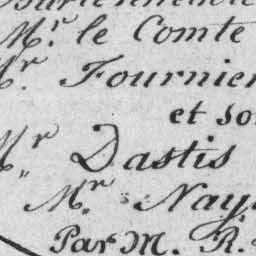 Mr. le Comte
Mr. Fournier
et so
Mr. Dastis
Mr. Nay
Par M. R.